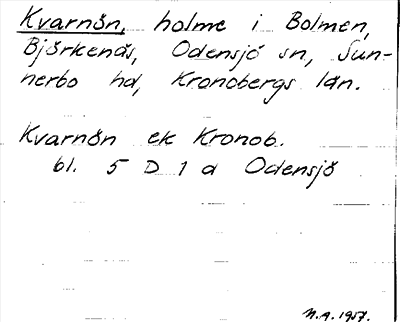 Kvarnön, holme i Bolmen,
Björkenäs, Odensjö sn, Sun-
nerbo hd, Kronobergs län.
Kvarnön ek Kronob.
bl. 5 D 1 a Odensjö
N.A. 1957.